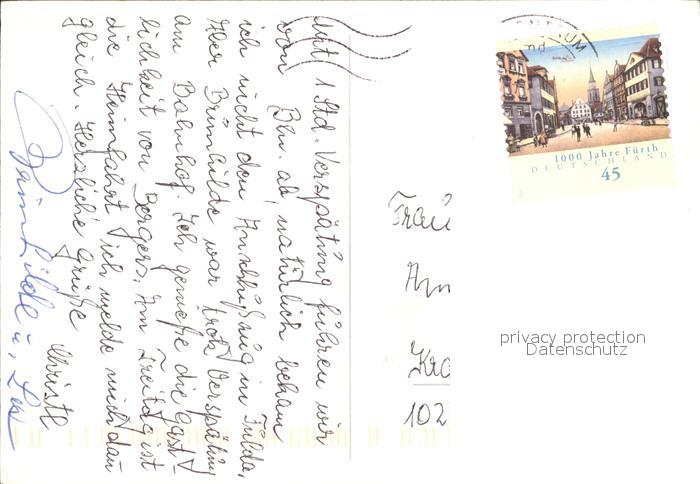 Mit 1 Std. Verspätung fuhren wir
von Bln. ab, natürlich bekam
ich nicht den Anschlußzug in Fulda.
Aber Brünhilde war trotz Verspätung
am Bahnhof. Ich genieße die Gast-
lichkeit von Bergers. Am Freitag ist
die Heimfahrt, ich melde mich dann
gleich. Herzliche Grüße
Christl
Brünhilde u.
Frau
Kra
102
1000 Jahre Fürth
DEUTSCHLAND
45
privacy protection
Datenschutz